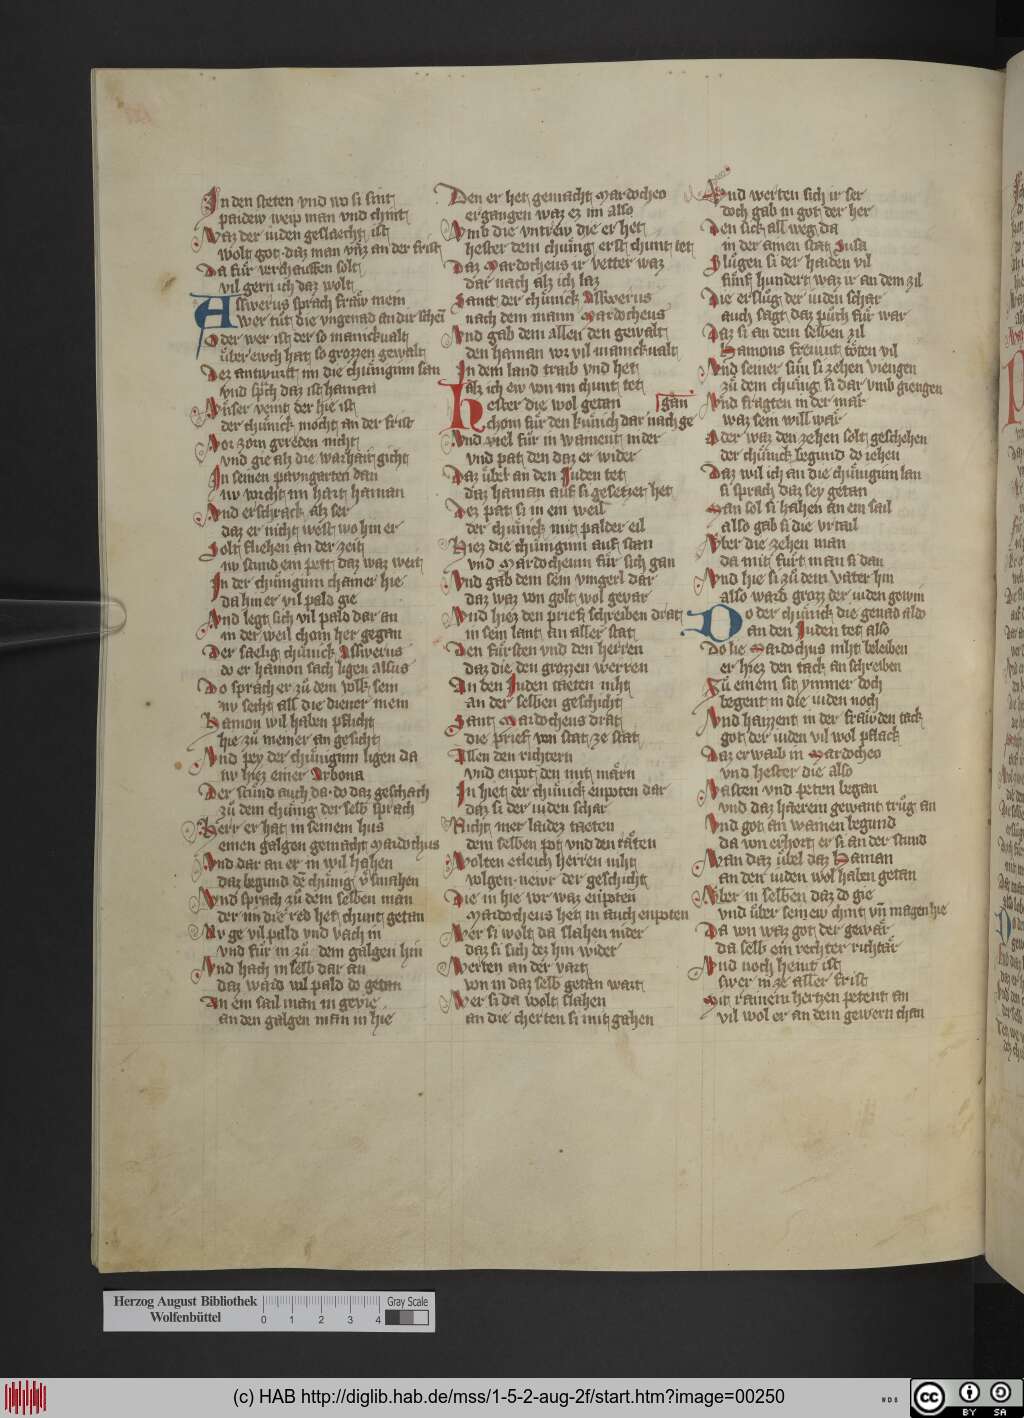 In den steten vnd wo si sint
paidew weip man vnd chint
Waz der iuden geslaecht ist
wolt got daz man vnz an der frist
Da für verchauffen solt
vil gern ich daz wolt
Asswerus sprach fraw mein
wer tut die vngenad an dir schein
Oder wer ist der so manickualt
über ewch hat so grozzen gewalt
Der antwurtt im die chünginn san
vnd sprach daz ist haman
Vnser veint der hie ist
der chünick mocht an der frist
Vor zorn gereden nicht
vnd gie alz die warhait gicht
In seinen pavngarten dan
nv vorcht im hart haman
Vnd erschrack alz ser
daz er nicht west wo hin er
Solt fliehen an der zeit
nv stund ein pett daz waz weit
In der chüngin chamer hie
da hin er vil pald gie
Vnd legt sich vil pald dar an
in der weil chom her gegan
Der saelig chünick Asswerus
do er hamon sach ligen alsus
Do sprach er zů dem volk sein
nv secht all die diener mein
Hamon wil haben pflicht
hie zů meiner an gesicht
Vnd pey der chünginn ligen da
nv hiez einer Arbona
Der stund auch da do daz geschach
zů dem chünig der selb sprach
Herr er hat in seinem hus
einen galgen gemacht mardochus
Vnd dar an er in wil hahen
daz begund den chünig versmahen
Vnd sprach zů dem selben man
der im die red het chunt getan
Nv ge vil pald vnd vach in
vnd für in zů dem galgen hin
Vnd hach in selb dar an
daz ward vil pald do getan
An ein sail man in gevie
an den galgen man in hie
Den er het gemacht Mardocheo
ergangen waz ez im also
Vmb die vntrew die er het
hester dem chünig erst chunt tet
Daz Mardocheus ir vetter waz
dar nach alz ich laz
Sant der chünick Asswerus
nach dem mann Mardocheus
Vnd gab dem allen den gewalt
den haman vor vil manickualt
In dem land traib vnd het
alz ich ew von im chunt tet
Hester die wol getan
gan
chom für den künich dar nach ge
Vnd viel für in wainent nider
vnd pat den daz er wider
Daz übel an den Juden tet
daz haman auf si gesetzet het
Dez pat si in ein weil
der chünick mit palder eil
Hiez die chüniginn auf stan
vnd Mardocheum für sich gan
Vnd gab dem sein vingerl dar
daz waz von golt wol gevar
Vnd hiez den prief schreiben drat
in sein lant an aller stat
Den fürsten vnd den herren
daz die den grozzen werren
An den Juden taeten niht
an der selben geschicht
Sant Mardocheus drat
die prief von stat ze stat
Allen den richtern
vnd enpot den mit märn
In hiet der chünick enpoten dar
daz si der iuden schar
Nicht mer laidez taeten
dem selben pot vnd den räten
Wolten etleich herren niht
volgen newr der geschicht
Die in hie vor waz enpoten
Mardocheus het in auch enpoten
Wer si wolt da slahen nider
daz si sich dez hin wider
Werten an der vart
von in daz selb getan wart
Wer si da wolt slahen
an die cherten si mit gahen
Vnd werten sich ir ser
doch gab in got der her
Den sick all weg da
in der ainen stat Susa
Slügen si der haiden vil
fünf hundert waz ir an dem zil
Die erslůg der iuden schar
auch sagt daz půch für war
Daz si an dem selben zil
Hamons freunt töten vil
Vnd seiner sün si zehen viengen
zů dem chünig si dar vmb giengen
Vnd fragten in der mär
waz sein will wär
Oder waz den zehen solt geschehen
der chünick begund do iehen
Daz wil ich an die chüniginn lan
si sprach daz sey getan
Man sol si hahen an ein sail
also gab si die vrtail
Vber die zehen man
da mit fürt man si dan
Vnd hie si zů dem vater hin
also ward groz der iuden gewin
Do der chünick die genad also
an den Juden tet also
Do lie Mardochus niht beleiben
er hiez den tack an schreiben
Zů einem sit ymmer doch
begent in die iuden noch
Vnd haizzent in der frawden tack
got der iuden vil wol pflack
Daz erwarb in Mardocheo
vnd Hester die also
Vasten vnd peten began
vnd daz häerein gewant trůg an
Vnd got an wainen begund
da von erhort er si an der stund
Wan daz übel daz Haman
an den iuden wol haben getan
Aber in selben daz do gie
vnd über seinew chint vnd magen hie
Da von waz got der gewär
da selb ein rechter richtär
Vnd noch hewt ist
swer in ze aller frist
Mit rainem hertzen petent an
vil wol er an dem gewern chan
Herzog August Bibliothek
Wolfenbüttel
Gray Scale
0 1 2 3 4
(c) HAB http://diglib.hab.de/mss/1-5-2-aug-2f/start.htm?image=00250
WDB
cc BY SA